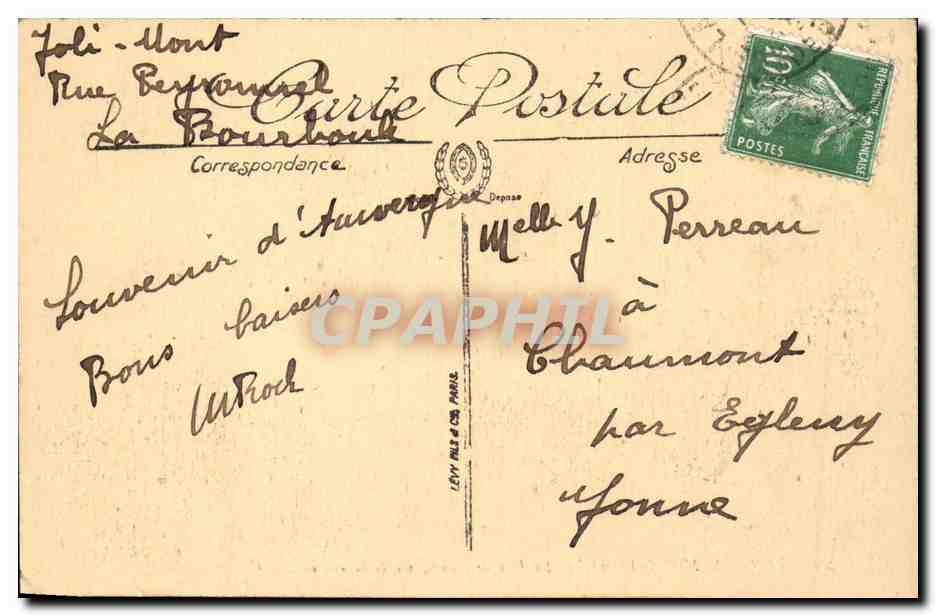 Joli-Mont
Rue Peyronnel
La Bourboule
Carte Postale
Correspondance
Adresse
Déposé
RÉPUBLIQUE FRANÇAISE
10c
POSTES
Souvenir d'Auvergne
Bons baisers
MRoch
Melle Y. Perreau
à
Chaumont
par Egleny
Yonne
LÉVY FILS & Cie, PARIS.
CPAPHIL